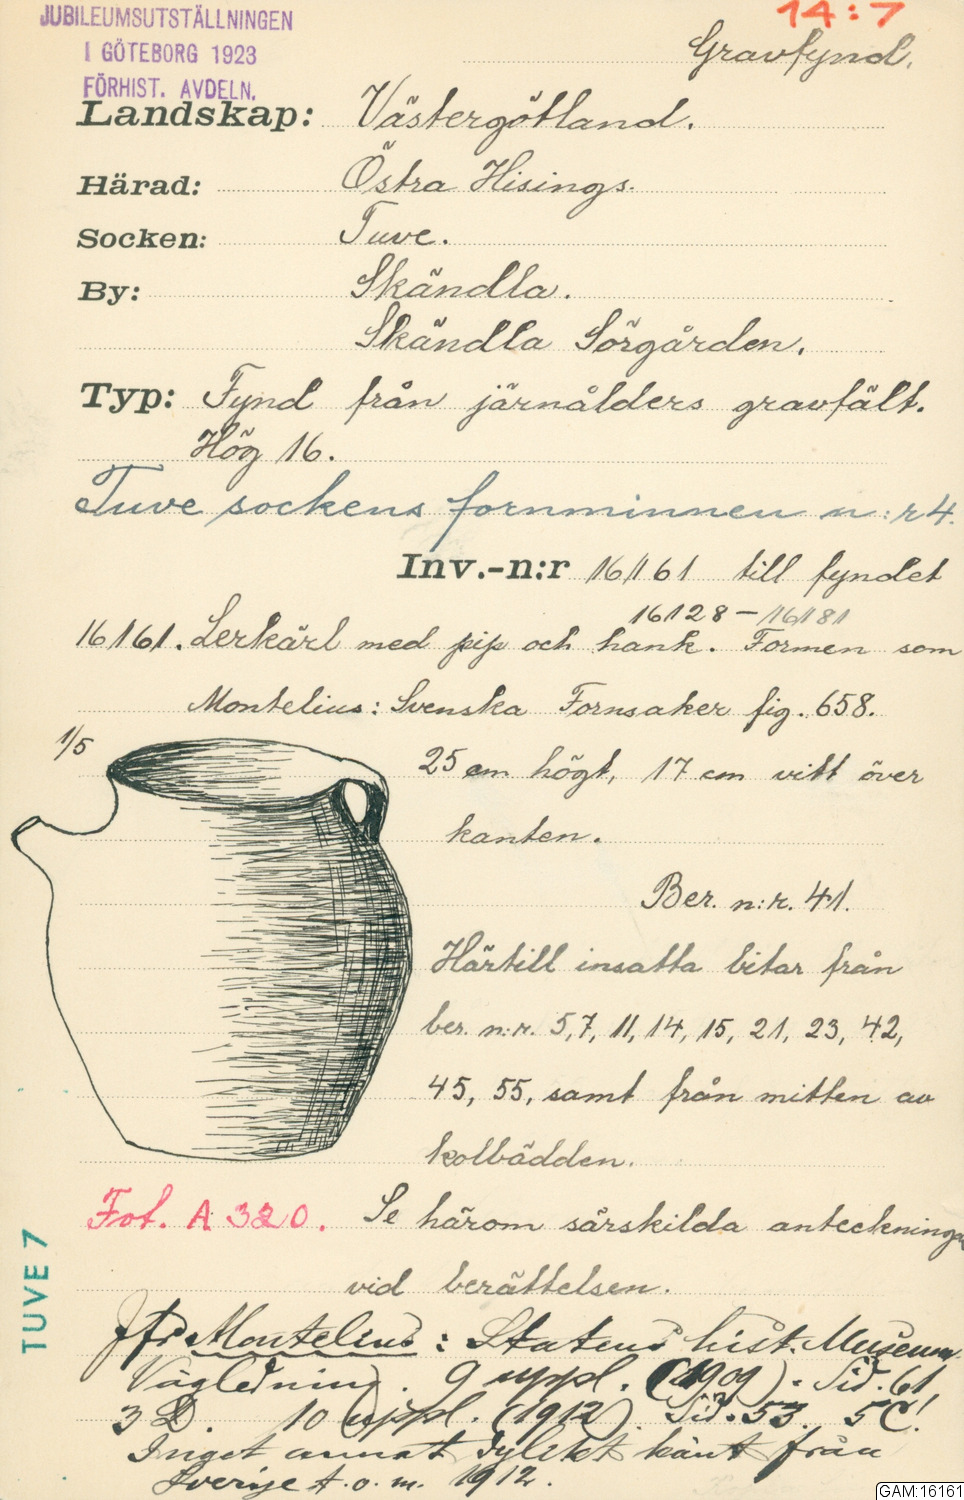 JUBILEUMSUTSTÄLLNINGEN
I GÖTEBORG 1923
FÖRHIST. AVDELN.
14:7
Gravfynd.
Landskap: Västergötland.
Härad: Östra Hisings.
Socken: Tuve.
By: Skändla.
Skändla Sörgården.
Typ: Fynd från järnålders gravfält.
Hög 16.
Tuve sockens fornminnen n:r 4.
Inv.-n:r 16161 till fyndet
16128-16181
16161. Lerkärl med pip och hank. Formen som
Montelius: Svenska Fornsaker fig. 658.
1/5
25 cm högt, 17 cm vitt över
kanten.
Ber. n:r. 41.
Härtill insatta bitar från
ber. n:r. 5, 7, 11, 14, 15, 21, 23, 42,
45, 55, samt från mitten av
kolbädden.
Fot. A 320. Se härom särskilda anteckningar
vid berättelsen.
TUVE 7
Jfr Montelius: Statens hist. Museum.
Vägledning. 9 uppl. (1909). Sid. 61
3 D. 10 uppl. (1912) Sid. 53. 5C!
Inget annat dylikt känt från
Sverige t.o.m. 1912.
GAM:16161